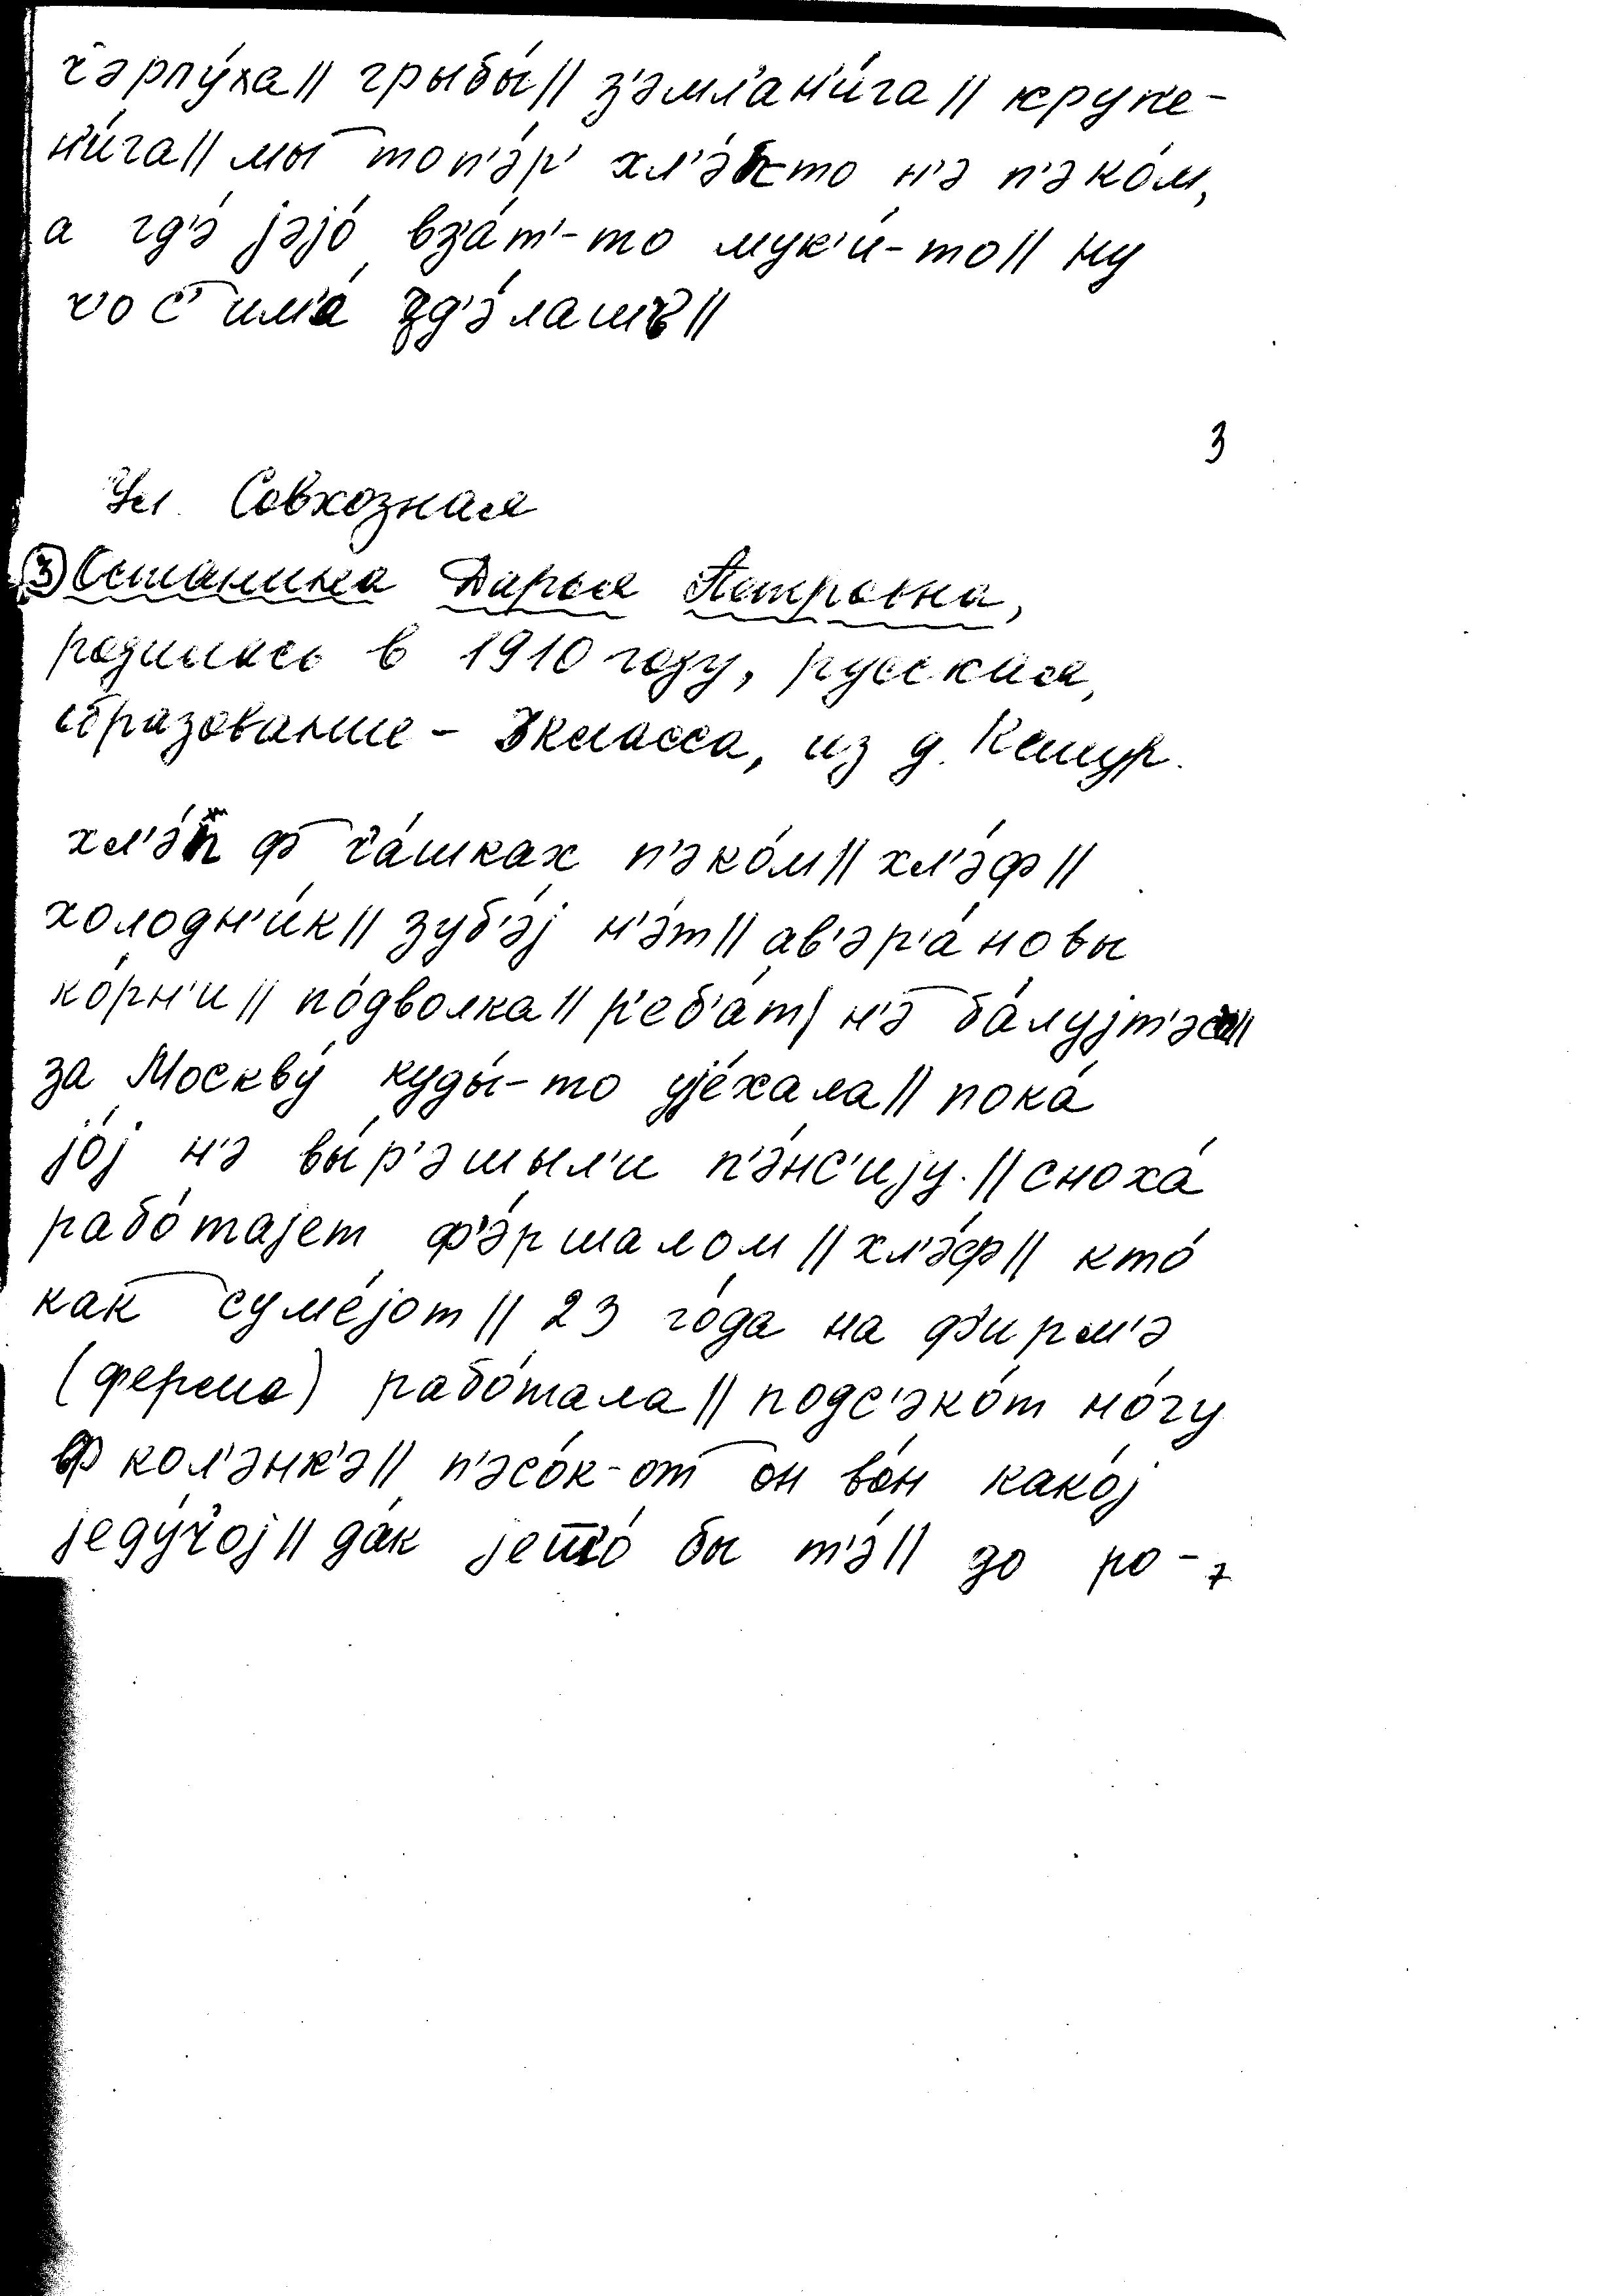 ч'эрпу́ха || грыбы́ || з'эмл'ан'и́га || крупе-
н'и́га || мы топ'э́р' хл'э́бто н'э п'эко́м,
а гд'э́ jэjо́ вз'а́т'-то мук'и́-то || ну
чо с'им'а́ зд'э́лаш ||
3
Ул. Совхозная
③ Останина Дарья Петровна,
родилась в 1910 году, русская,
образование - 3 класса, из д. Кешур.
хл'э́п ф ч'а́шках п'эко́м || хл'э́ф ||
холодн'и́к || зуб'э́j н'э́т || ав'эр'а́новы
ко́рн'и || по́дволка || р'еб'а́т | н'э ба́луjт'эс ||
за Москву́ куды́-то уjе́хала || пока́
jо́j н'э вы́р'эшыл'и п'э́нс'иjу || сноха́
рабо́таjет ф'э́ршалом || хл'э́ф || кто́
как суме́jот || 23 го́да на ф'и́рм'э
(ферма) рабо́тала || подс'эко́т но́гу
ф кол'э́нк'э || п'эсо́к-от он во́н како́j
jеду́ч'оj || да́к бы т'э́ || до ро-